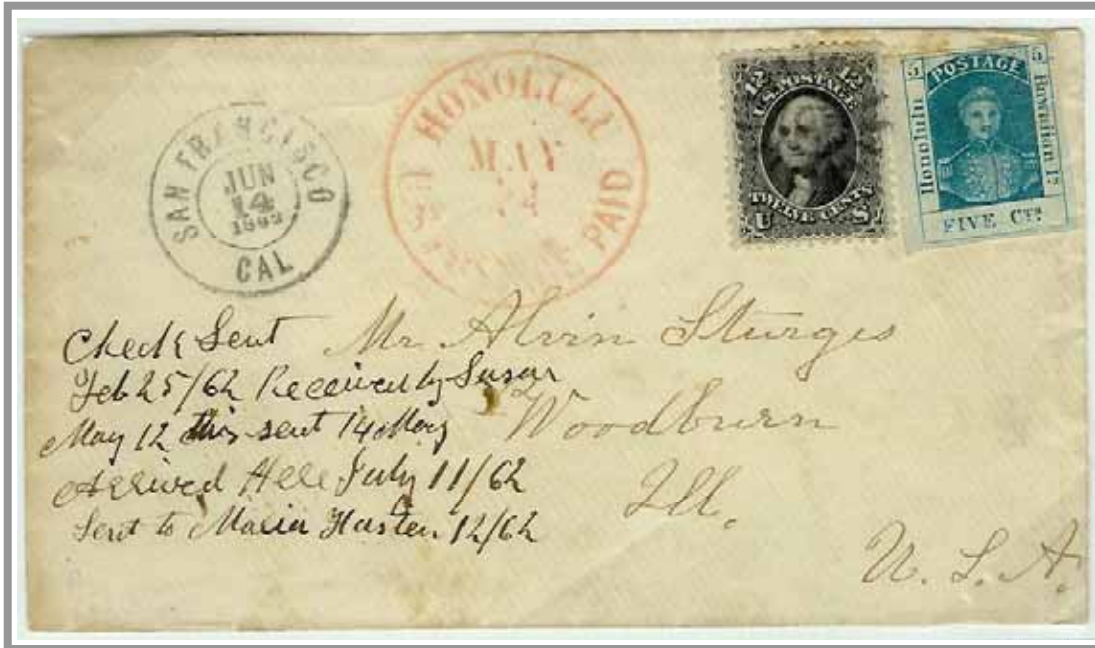 SAN FRANCISCO
JUN
14
1862
CAL
HONOLULU
MAY
U.S. POSTAGE PAID
12 12
U.S. POSTAGE
TWELVE CENTS
U S
5 POSTAGE 5
Honolulu
Hawaiian Is.
FIVE CTS.
Check Sent
Feb 25/62 Received by Susan
May 12 this sent 14 May
Arrived Here July 11/62
Sent to Maria 12/62
Mr Alvin Sturges
Woodburn
Ill.
U. S. A.